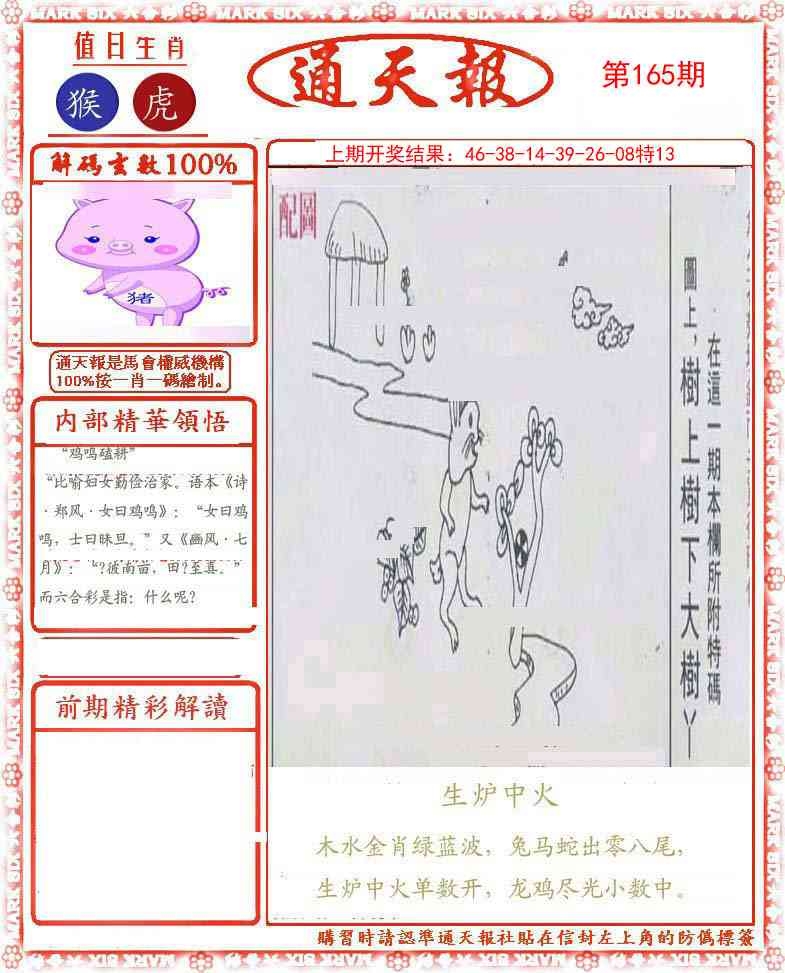 MARK SIX 六合彩
值日生肖
猴 虎
通天報
第165期
解碼玄數100%
猪
通天報是馬會權威機構
100%按一肖一碼繪制。
内部精華領悟
“鸡鸣磕耕”
“比喻妇女勤俭治家。语本《诗
·郑风·女曰鸡鸣》：“女曰鸡
鸣，士曰昧旦。”又《豳风·七
月》：“?彼南亩，田?至喜。”
而六合彩是指：什么呢?
前期精彩解讀
上期开奖结果：46-38-14-39-26-08特13
配圖
在這一期本欄所附特碼
圖上，樹上樹下大樹丫
生炉中火
木水金肖绿蓝波，兔马蛇出零八尾，
生炉中火单数开，龙鸡尽光小数中。
購習時請認準通天報社貼在信封左上角的防偽標簽